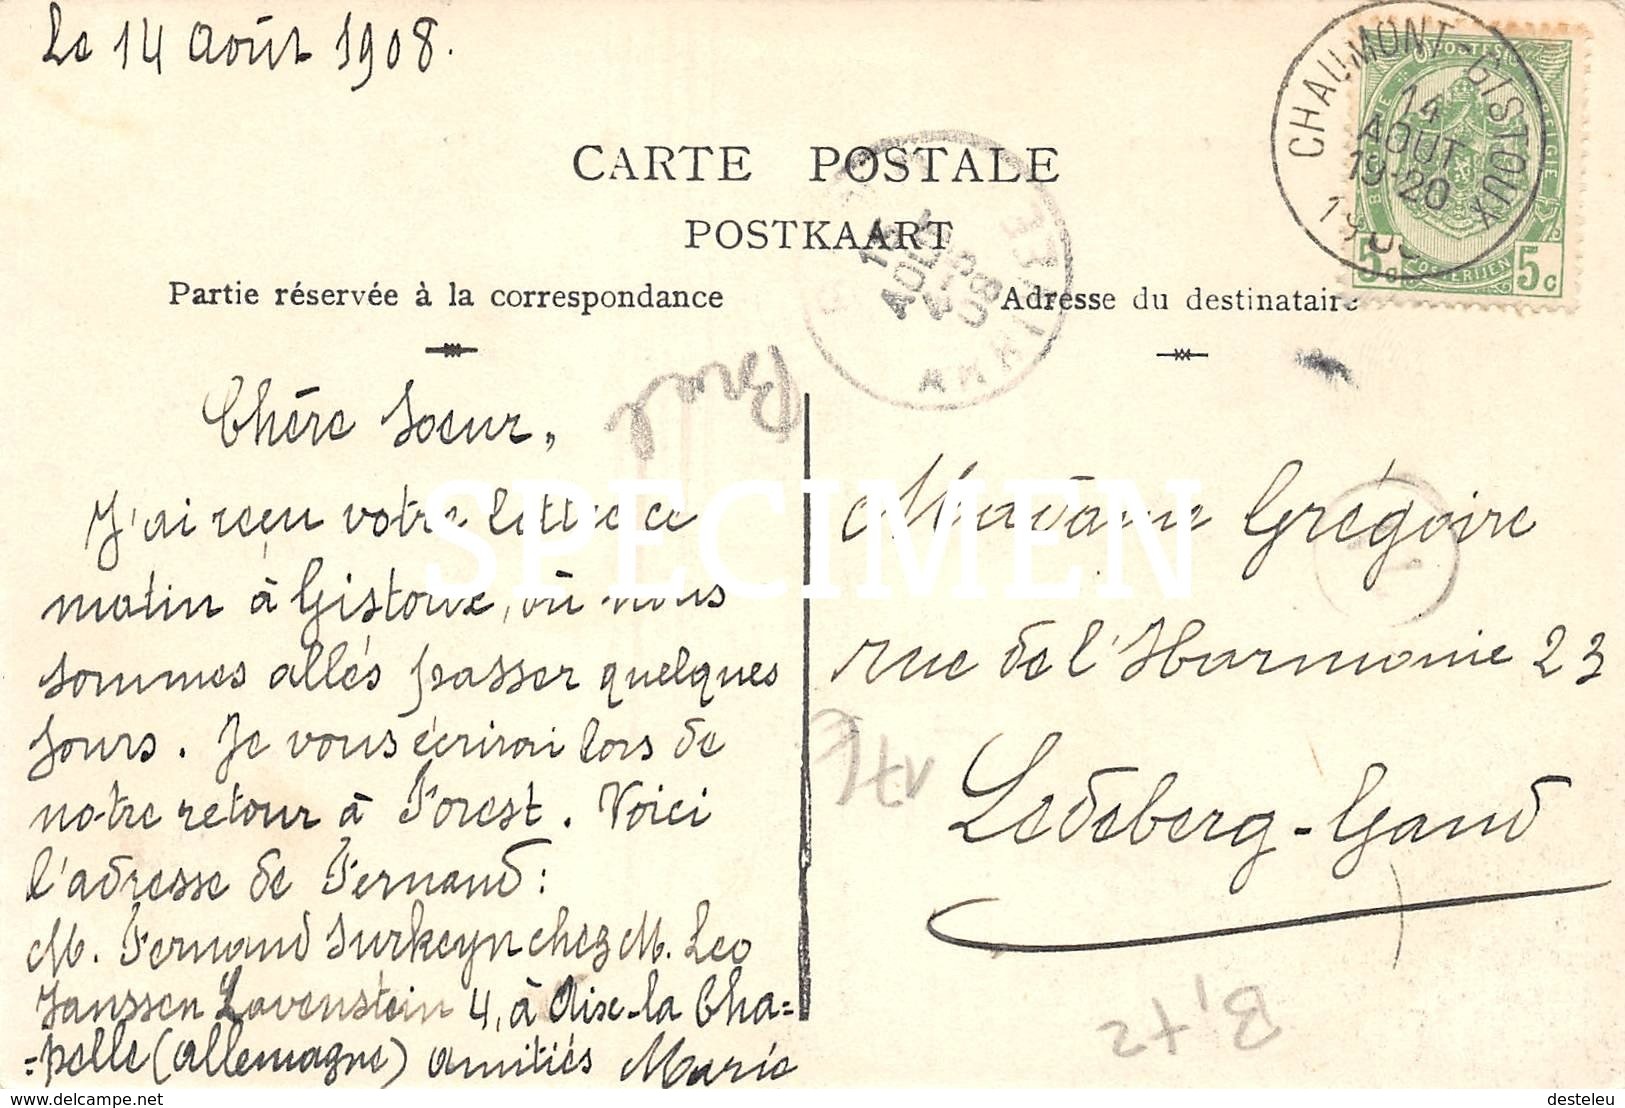 Le 14 Août 1908.
CHAUMONT-GISTOUX
14
AOUT
19-20
POSTES
BELGIQUE
BELGIE
POSTERIJEN
5c 5c
CARTE POSTALE
POSTKAART
AOUT
08
Partie réservée à la correspondance
Adresse du destinataire
Chère Soeur,
J'ai reçu votre lettre ce
matin à Gistoux, où nous
sommes allés passer quelques
jours. Je vous écrirai lors de
notre retour à Forest. Voici
l'adresse de Fernand:
M. Fernand Surkeyn chez M. Leo
Janssen Lovenstein 4, à Aix-la Cha=
=pelle (Allemagne) amitiés Marie
Madame Grégoire
rue de l'Harmonie 23
Ledeberg-Gand
SPECIMEN
delcampe.net
desteleu